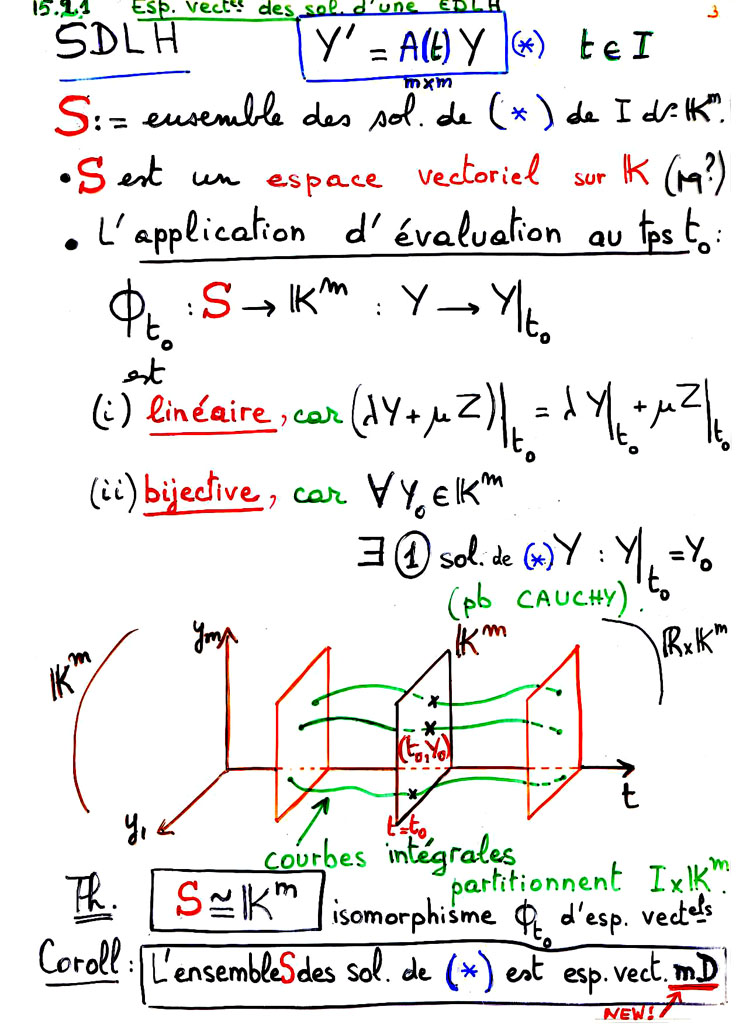 15.2.1 Esp. vectel des sol. d'une EDLH 3
SDLH Y' = A(t) Y (*) t ∈ I
m×m
S := ensemble des sol. de (*) de I ds 𝕂^m.
• S est un espace vectoriel sur 𝕂 (pq?)
• L'application d'évaluation au tps t₀ :
Φ_t₀ : S → 𝕂^m : Y → Y|_t₀
est
(i) linéaire, car (λY + μZ)|_t₀ = λY|_t₀ + μZ|_t₀
(ii) bijective, car ∀ Y₀ ∈ 𝕂^m
∃ ① sol. de (*) Y : Y|_t₀ = Y₀
(pb CAUCHY).
𝕂^m y_m 𝕂^m ℝ×𝕂^m
(t₀,Y₀)
y₁ t=t₀ t
courbes intégrales
partitionnent I×𝕂^m.
Th. S ≅ 𝕂^m isomorphisme Φ_t₀ d'esp. vectels
Coroll : L'ensemble S des sol. de (*) est esp. vect. mD
NEW!